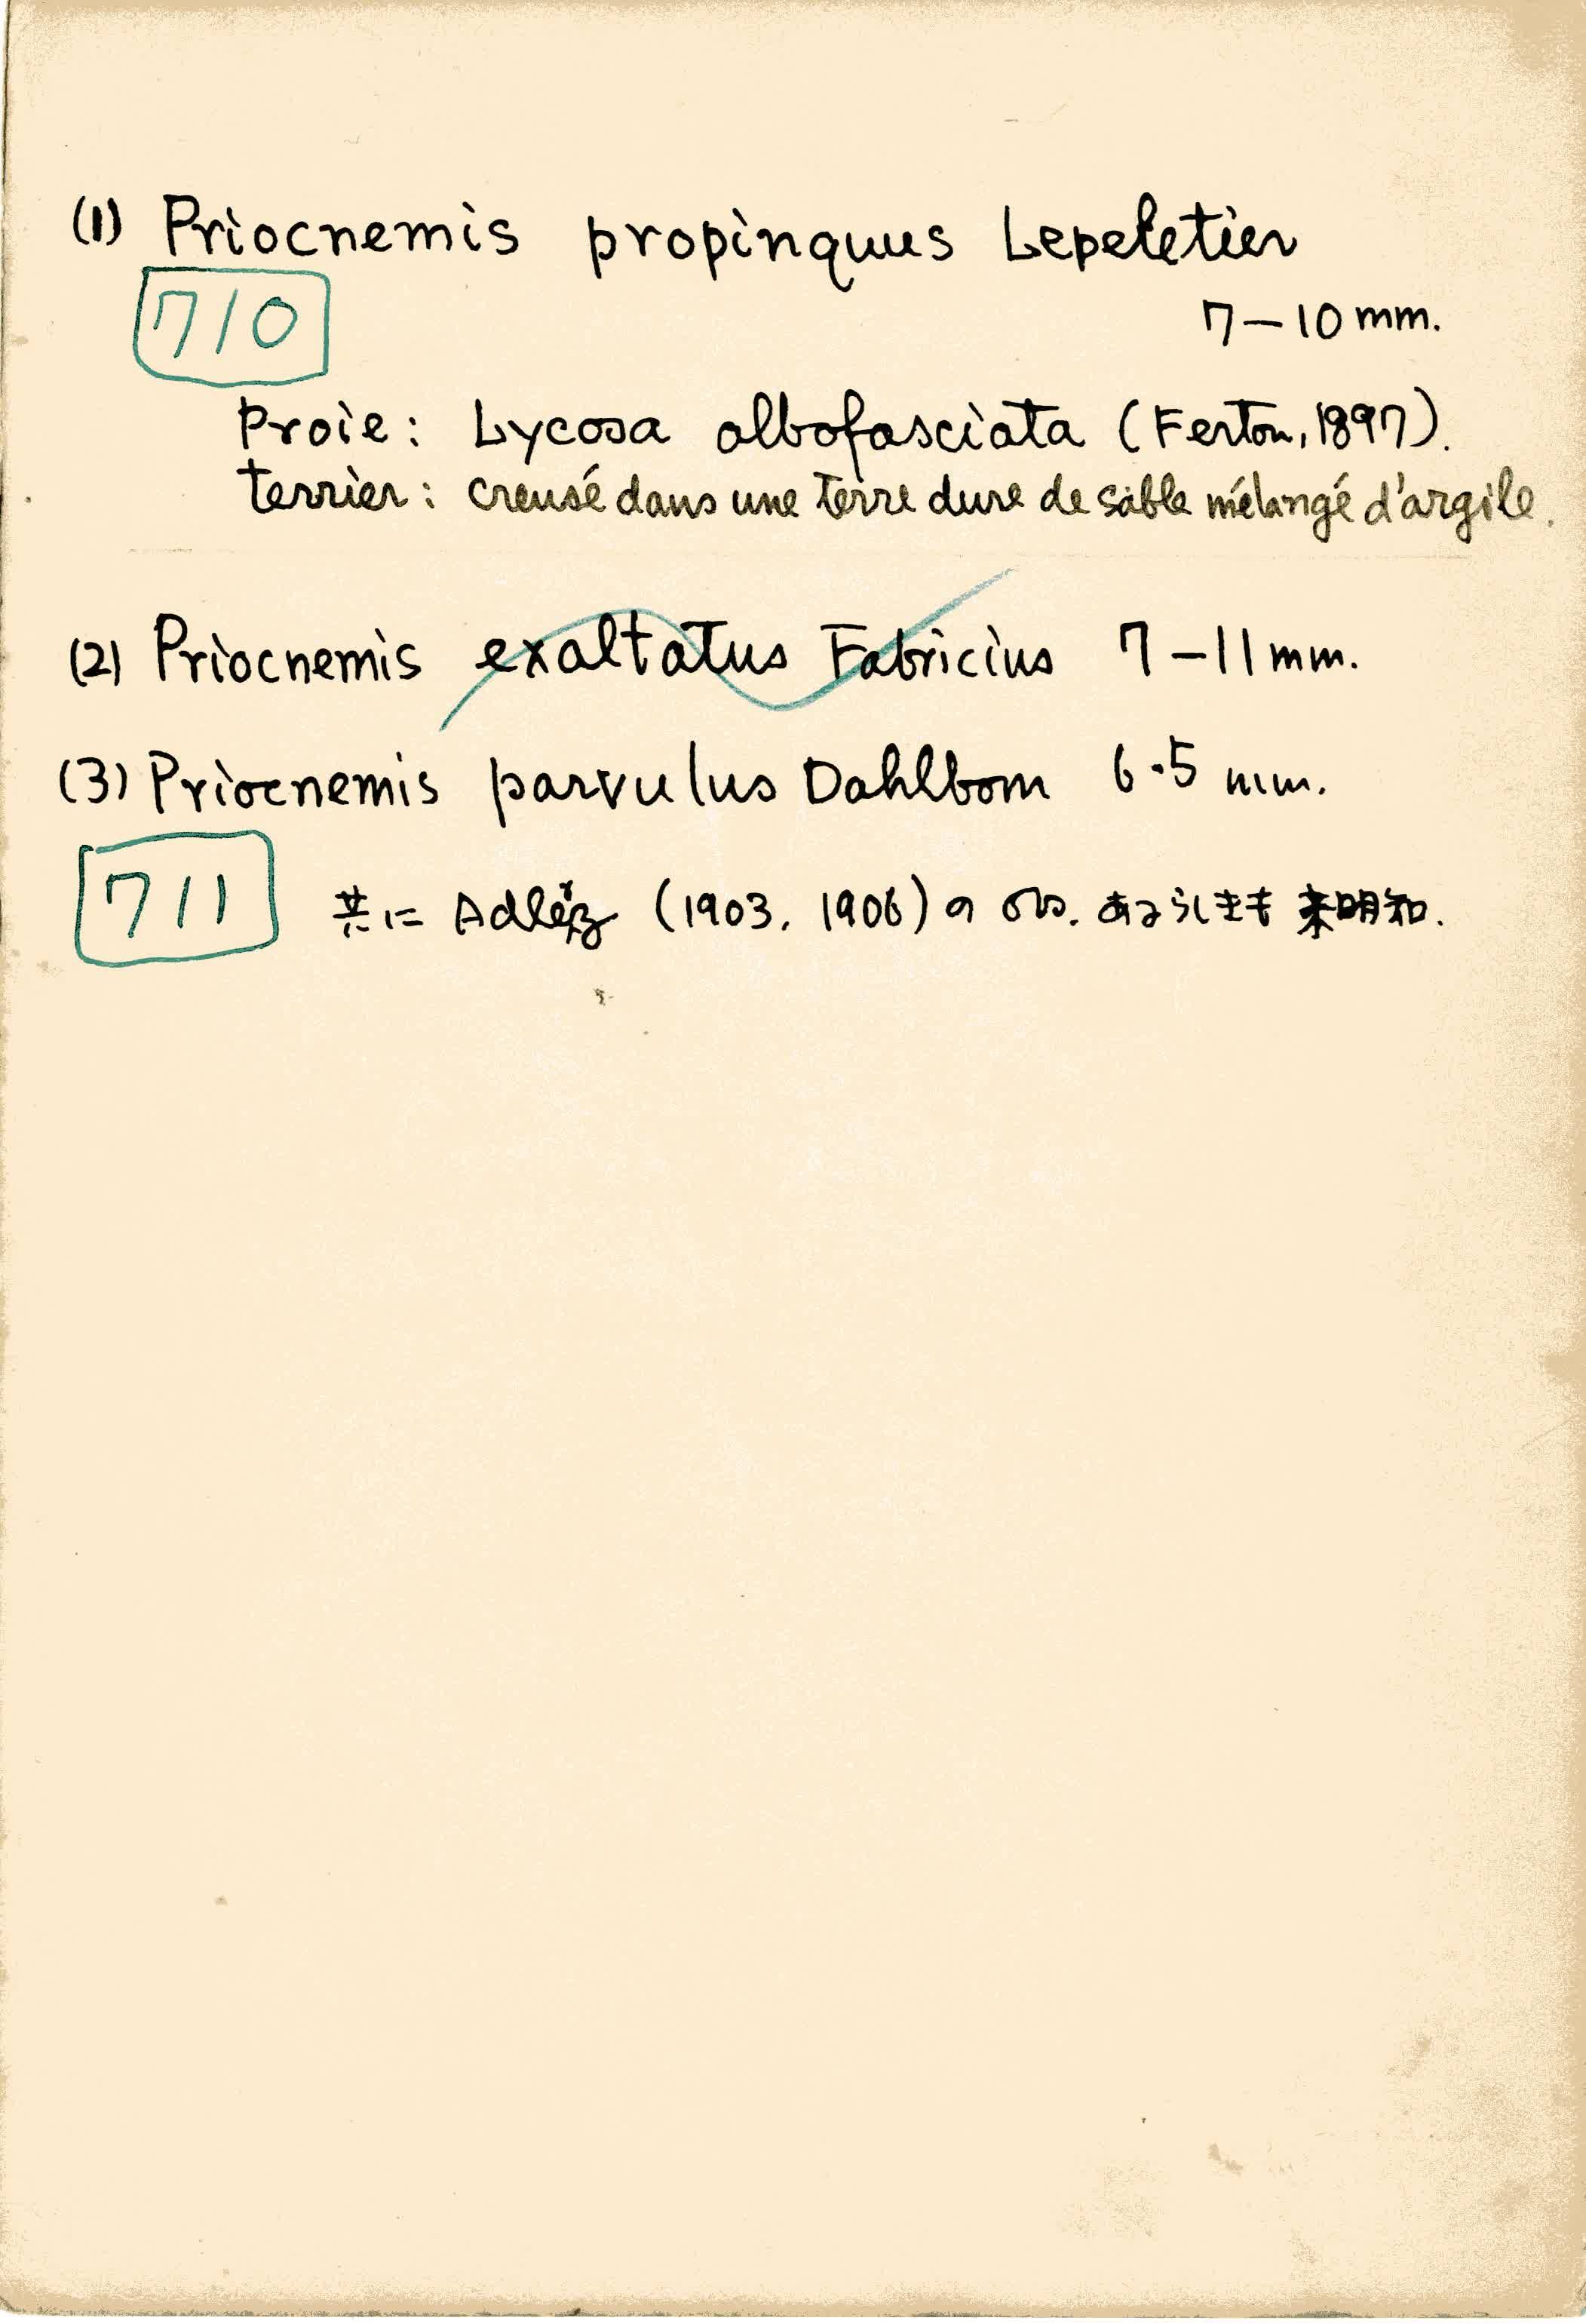 (1) Priocnemis propinquus Lepeletier
710
7–10 mm.
Proie: Lycosa albofasciata (Ferton, 1897).
terrier: creusé dans une terre dure de sable mélangé d'argile.
(2) Priocnemis exaltatus Fabricius 7–11 mm.
(3) Priocnemis parvulus Dahlbom 6.5 mm.
711
共に Adlerz (1903, 1906) の obs. あるらしきも